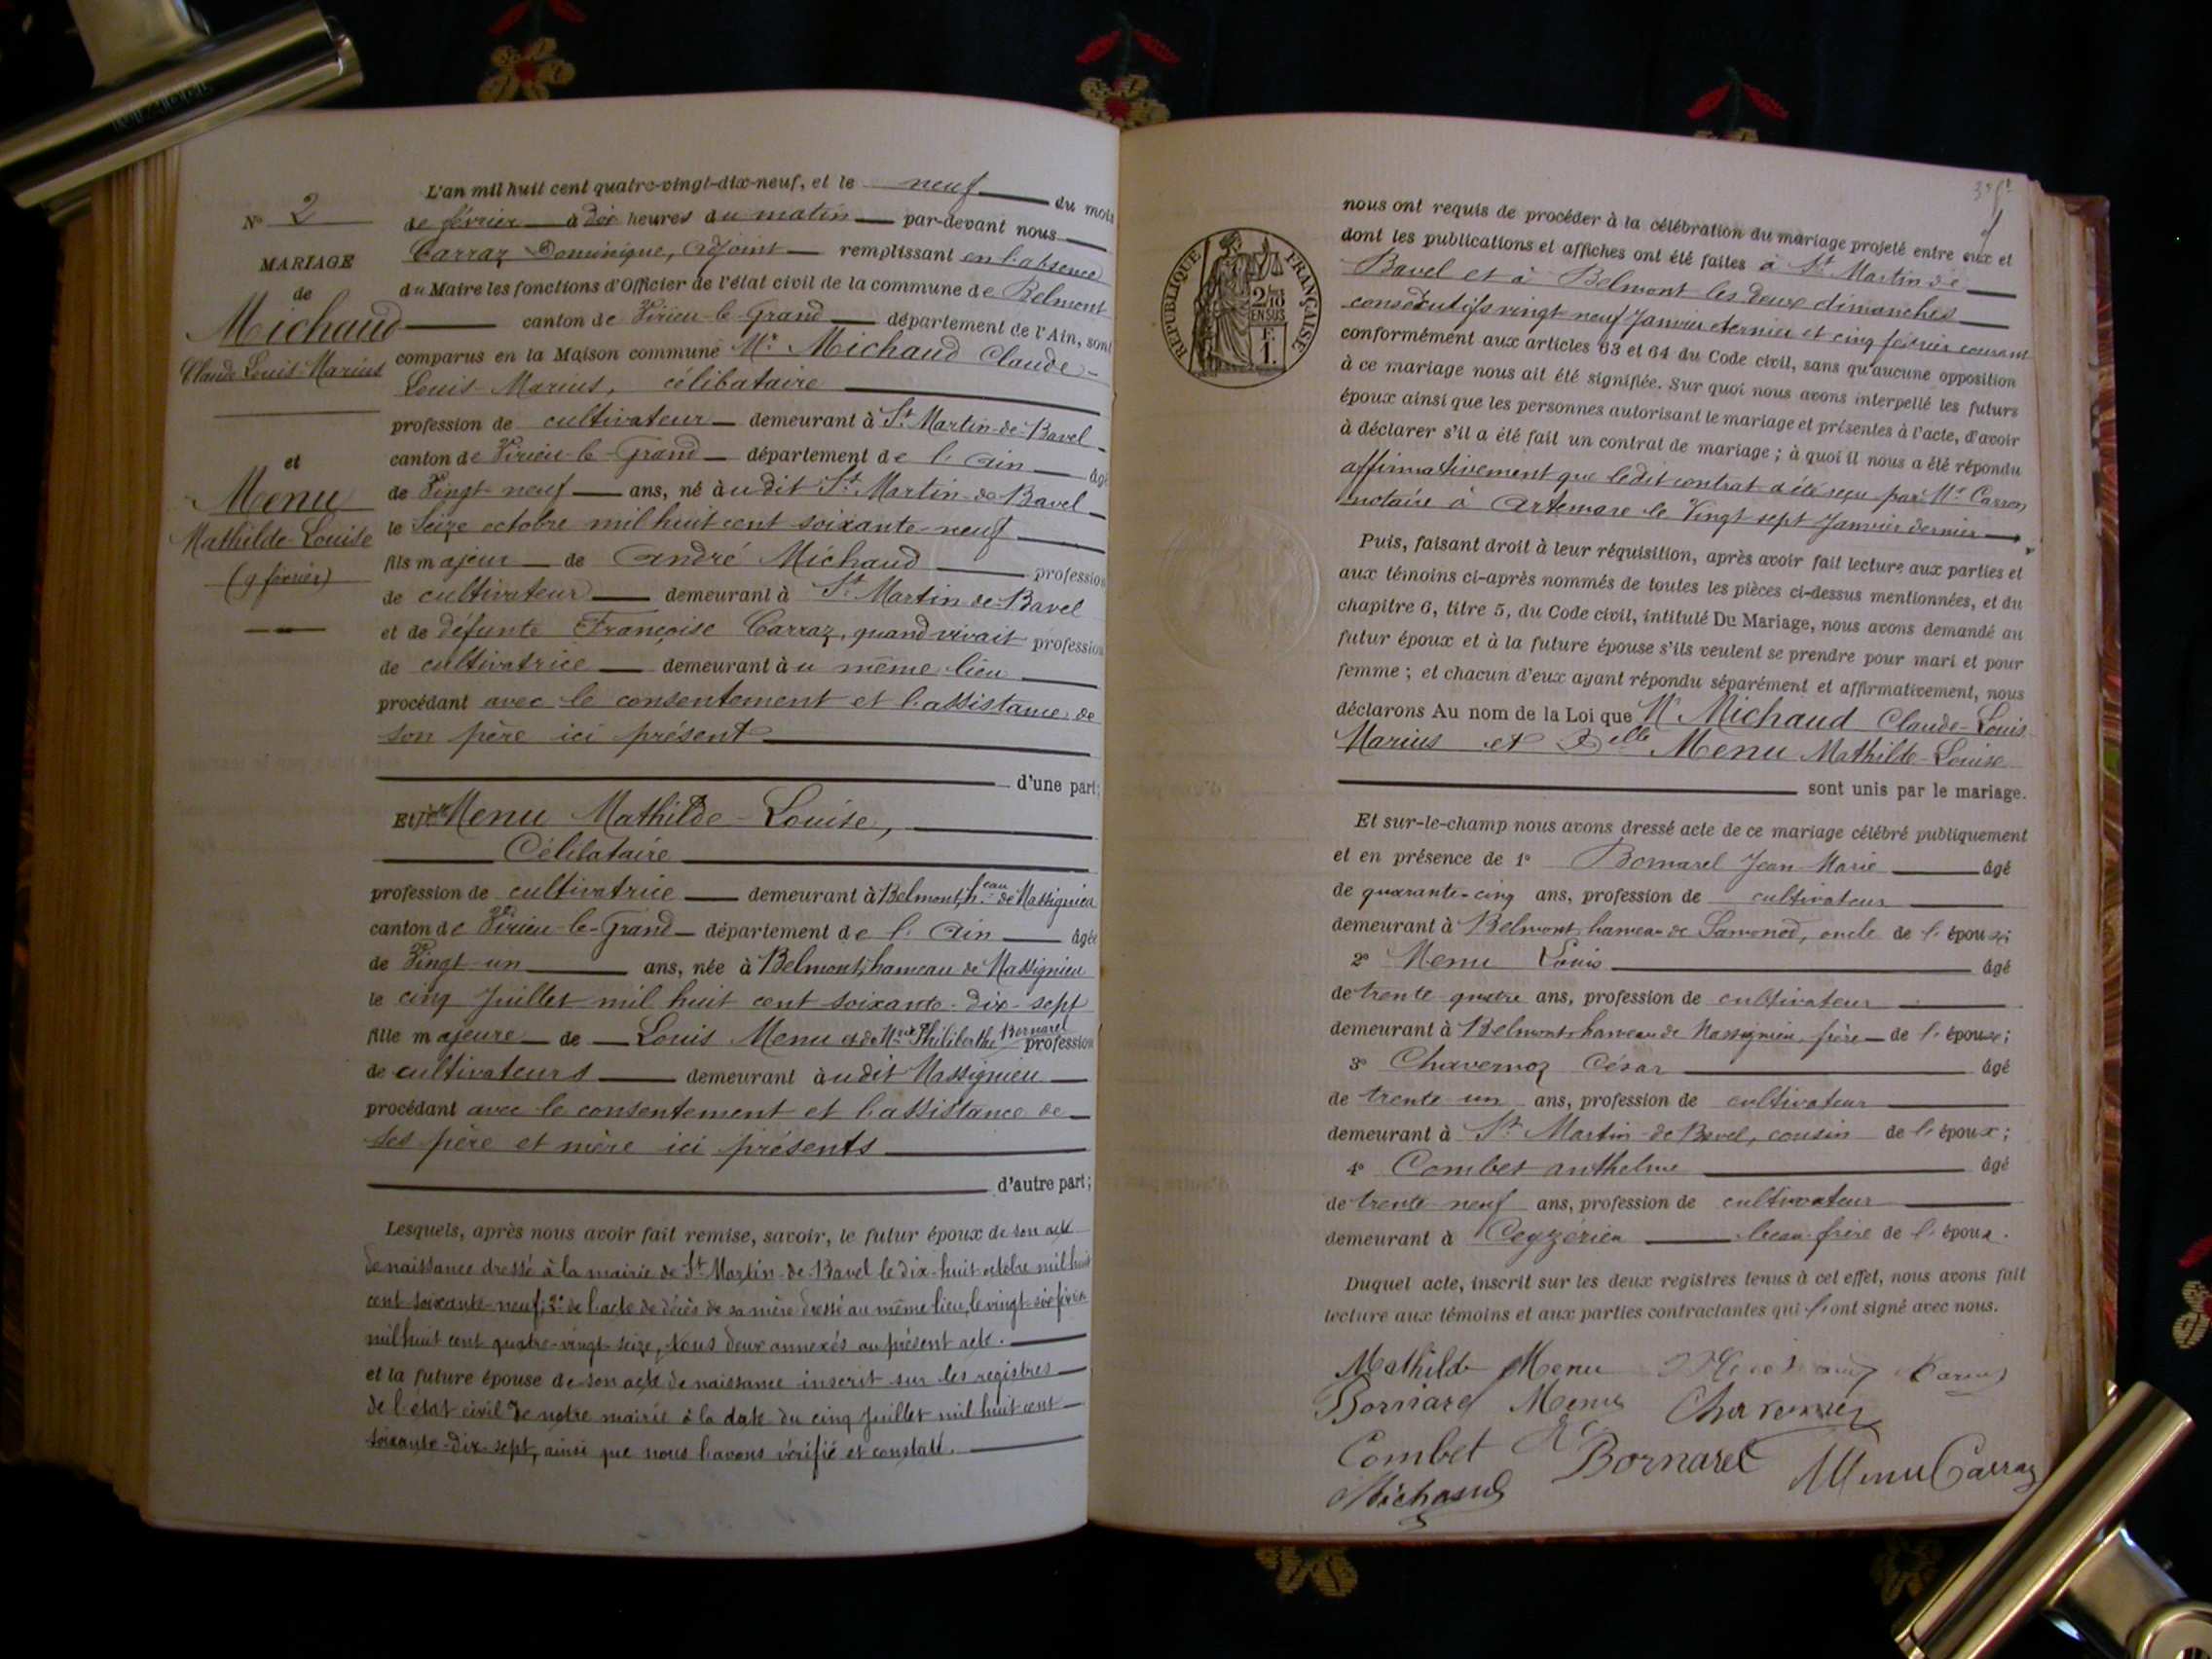 L'an mil huit cent quatre-vingt-dix-neuf, et le neuf du mois
de février à dix heures du matin par-devant nous
Carraz Dominique, adjoint remplissant en l'absence
du Maire les fonctions d'Officier de l'état civil de la commune de Belmont
canton de Virieu-le-Grand département de l'Ain, sont
comparus en la Maison commune Mr Michaud Claude-
Louis-Marius, célibataire
profession de cultivateur demeurant à St Martin-de-Bavel
canton de Virieu-le-Grand département de l'Ain âgé
de Vingt-neuf ans, né àu dit St Martin-de-Bavel
le seize octobre mil huit cent soixante-neuf
fils majeur de André Michaud profession
de cultivateur demeurant à St Martin-de-Bavel
et de défunte Françoise Carraz, quand vivait profession
de cultivatrice demeurant àu même lieu
procédant avec le consentement et l'assistance de
son père ici présent
d'une part;
Et Delle Menu Mathilde-Louise,
Célibataire
profession de cultivatrice demeurant à Belmont, heau de Massignieu
canton de Virieu-le-Grand département de l'Ain âgée
de Vingt-un ans, née à Belmont, hameau de Massignieu
le cinq Juillet mil huit cent soixante-dix-sept
fille majeure de Louis Menu et de Philiberthe Bornarel profession
de cultivateurs demeurant àudit Massignieu
procédant avec le consentement et l'assistance de
ses père et mère ici présents
d'autre part;
Lesquels, après nous avoir fait remise, savoir, le futur époux de son acte
de naissance dressé à la mairie de St Martin-de-Bavel le dix-huit octobre mil huit
cent soixante-neuf; 2° de l'acte de décès de sa mère dressé au même lieu, le vingt-six février
mil huit cent quatre-vingt-seize, tous deux annexés au présent acte.
et la future épouse de son acte de naissance inscrit sur les registres
de l'état civil de notre mairie à la date du cinq Juillet mil huit cent
soixante-dix-sept, ainsi que nous l'avons vérifié et constaté.
N° 2
MARIAGE
de
Michaud
Claude Louis-Marius
et
Menu
Mathilde-Louise
(9 février)
nous ont requis de procéder à la célébration du mariage projeté entre eux et
dont les publications et affiches ont été faites à St Martin de
Bavel et à Belmont les deux dimanches
consécutifs vingt neuf Janvier dernier et cinq février courant
conformément aux articles 63 et 64 du Code civil, sans qu'aucune opposition
à ce mariage nous ait été signifiée. Sur quoi nous avons interpellé les futurs
époux ainsi que les personnes autorisant le mariage et présentes à l'acte, d'avoir
à déclarer s'il a été fait un contrat de mariage; à quoi il nous a été répondu
affirmativement que ledit contrat a été reçu par Me Carron
notaire à Artemare le Vingt sept Janvier dernier
Puis, faisant droit à leur réquisition, après avoir fait lecture aux parties et
aux témoins ci-après nommés de toutes les pièces ci-dessus mentionnées, et du
chapitre 6, titre 5, du Code civil, intitulé Du Mariage, nous avons demandé au
futur époux et à la future épouse s'ils veulent se prendre pour mari et pour
femme; et chacun d'eux ayant répondu séparément et affirmativement, nous
déclarons Au nom de la Loi que Mr Michaud Claude-Louis
Marius et Delle Menu Mathilde-Louise
sont unis par le mariage.
Et sur-le-champ nous avons dressé acte de ce mariage célébré publiquement
et en présence de 1° Bornarel Jean-Marie âgé
de quarante-cinq ans, profession de cultivateur
demeurant à Belmont, hameau de Samonod, oncle de l'épouse;
2° Menu Louis âgé
de trente quatre ans, profession de cultivateur
demeurant à Belmont, hameau de Massignieu, frère de l'épouse;
3° Chavernoz César âgé
de trente un ans, profession de cultivateur
demeurant à St Martin-de-Bavel, cousin de l'époux;
4° Combet anthelme âgé
de trente neuf ans, profession de cultivateur
demeurant à Ceyzérieu beau-frère de l'époux.
Duquel acte, inscrit sur les deux registres tenus à cet effet, nous avons fait
lecture aux témoins et aux parties contractantes qui l'ont signé avec nous.
Mathilde Menu
Bornarel Menu Chavernoz
Combet Bornarel Menu Carraz
Michaud
RÉPUBLIQUE FRANÇAISE
2/10
EN SUS
F.
1.